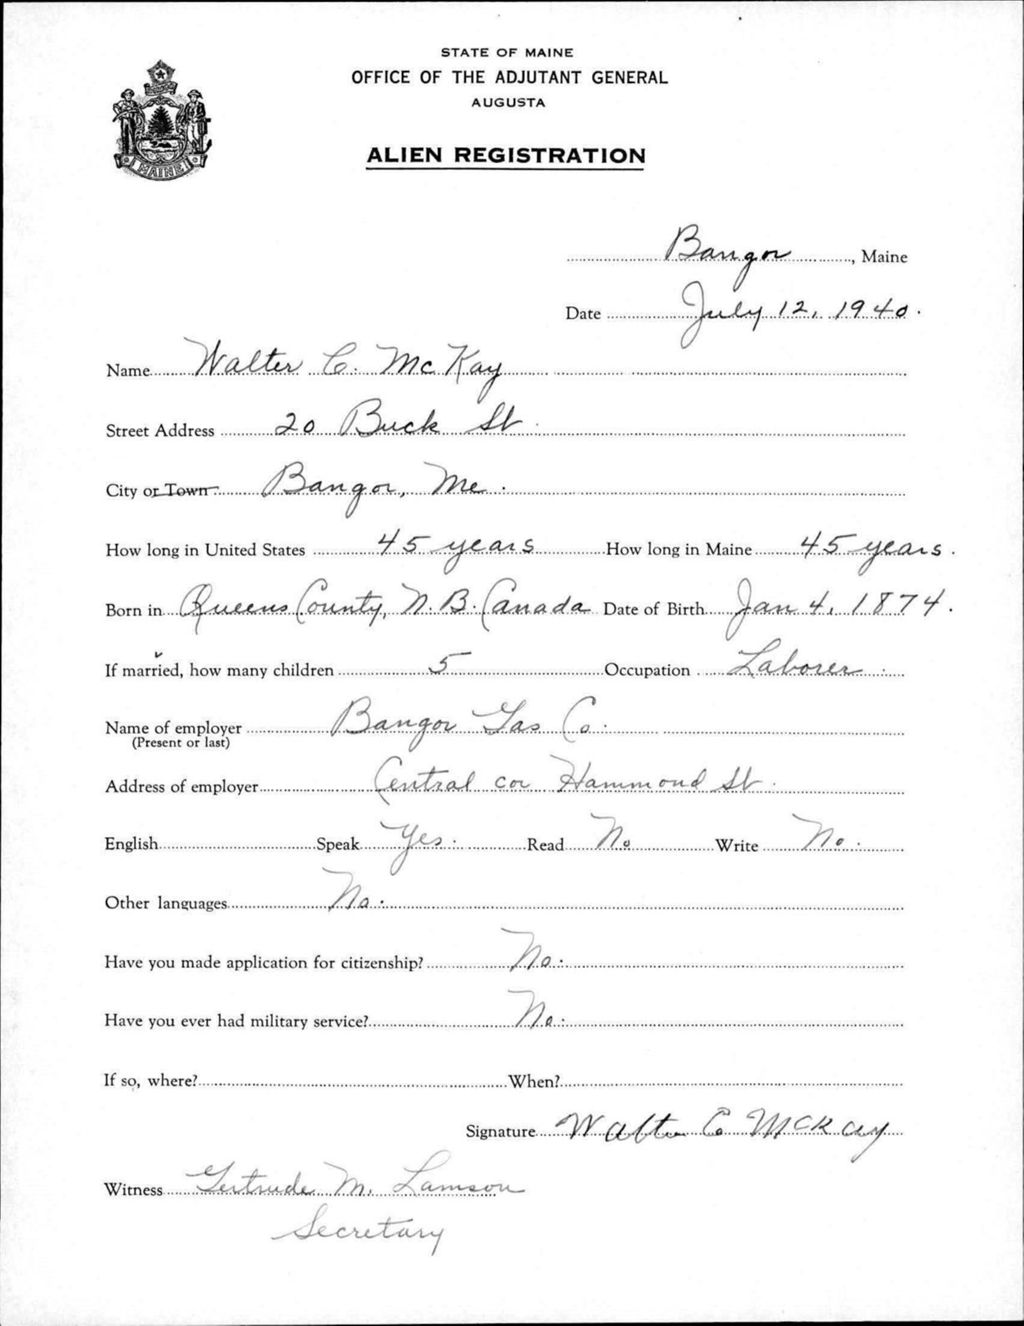 STATE OF MAINE
OFFICE OF THE ADJUTANT GENERAL
AUGUSTA
ALIEN REGISTRATION
MAINE
Bangor, Maine
Date July 12, 1940.
Name Walter C. McKay
Street Address 20 Buck St.
City or Town Bangor, Me.
How long in United States 45 years How long in Maine 45 years.
Born in Queens County, N.B. Canada Date of Birth Jan 4, 1874.
If married, how many children 5 Occupation Laborer.
Name of employer Bangor Gas Co.
(Present or last)
Address of employer Central cor Hammond St.
English Speak Yes. Read No Write No.
Other languages No.
Have you made application for citizenship? No.
Have you ever had military service? No.
If so, where? When?
Signature Walter C McKay
Witness Gertrude M. Lamson
Secretary